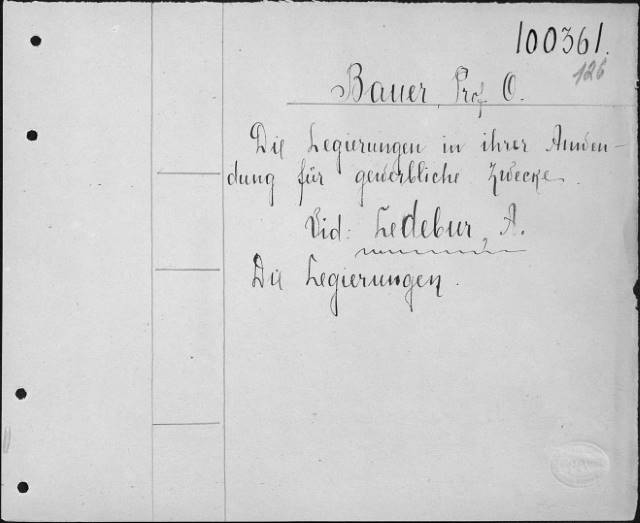 100361.
126
Bauer, Prof O.
Die Legierungen in ihrer Anwen-
dung für gewerbliche Zwecke.
Vid: Ledebur, A.
Die Legierungen.